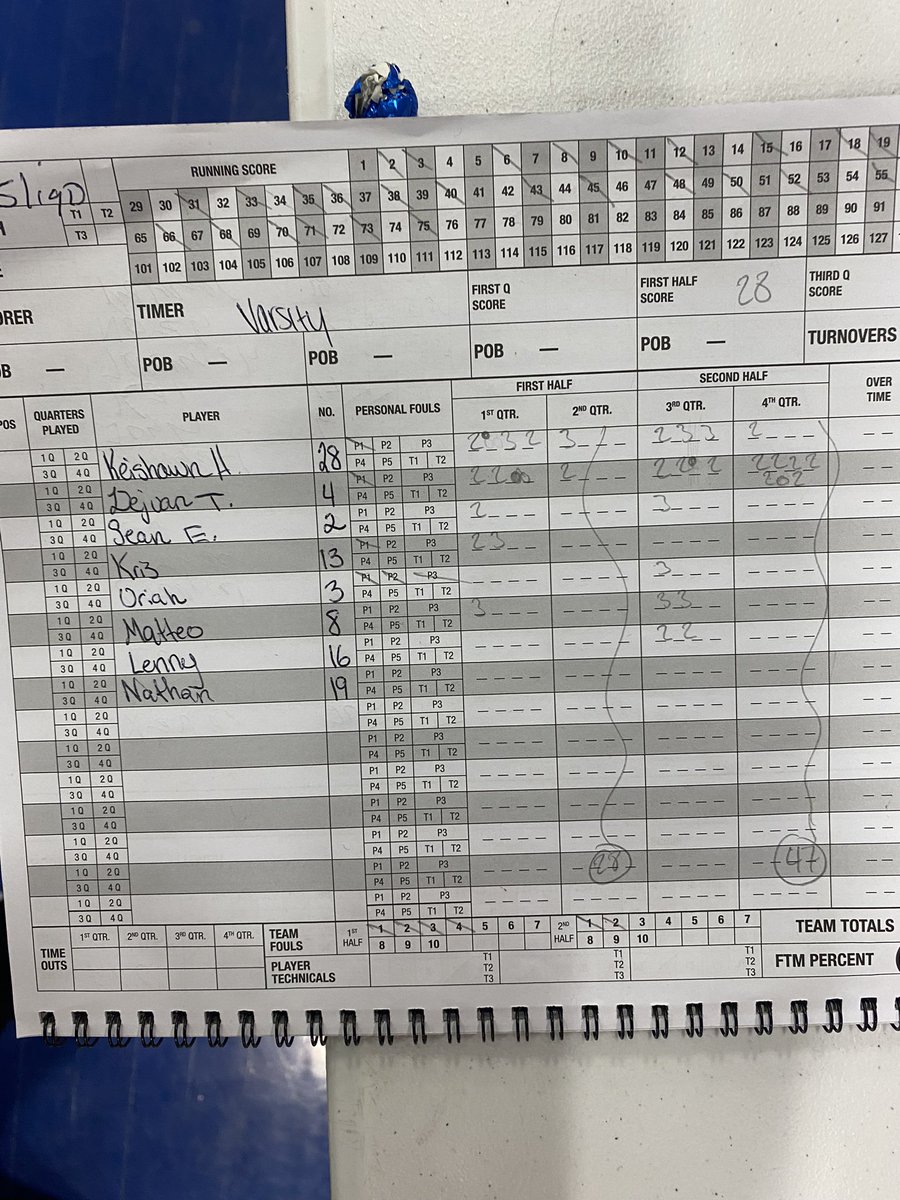 Sligo
RUNNING SCORE 1 2 3 4 5 6 7 8 9 10 11 12 13 14 15 16 17 18 19
T1 T2 29 30 31 32 33 34 35 36 37 38 39 40 41 42 43 44 45 46 47 48 49 50 51 52 53 54 55
T3 65 66 67 68 69 70 71 72 73 74 75 76 77 78 79 80 81 82 83 84 85 86 87 88 89 90 91
101 102 103 104 105 106 107 108 109 110 111 112 113 114 115 116 117 118 119 120 121 122 123 124 125 126 127
ORER TIMER Varsity FIRST Q SCORE FIRST HALF SCORE 28 THIRD Q SCORE
B — POB — POB — POB — POB — TURNOVERS
FIRST HALF SECOND HALF
POS QUARTERS PLAYED PLAYER NO. PERSONAL FOULS 1ST QTR. 2ND QTR. 3RD QTR. 4TH QTR. OVER TIME
1Q 2Q Keishawn H. 28 P1 P2 P3 3 2 3 2 3 3 2
3Q 4Q P4 P5 T1 T2
1Q 2Q Dejuan T. 4 P1 P2 P3 2 2 2 2 2 2 2 2 2 2 2
3Q 4Q P4 P5 T1 T2 2 0 2
1Q 2Q Sean E. 2 P1 P2 P3 2 3
3Q 4Q P4 P5 T1 T2
1Q 2Q Kris 13 P1 P2 P3 2 3
3Q 4Q P4 P5 T1 T2
1Q 2Q Oriah 3 P1 P2 P3 3
3Q 4Q P4 P5 T1 T2
1Q 2Q Matteo 8 P1 P2 P3 3 3 3
3Q 4Q P4 P5 T1 T2
1Q 2Q Lenny 16 P1 P2 P3 2 2
3Q 4Q P4 P5 T1 T2
1Q 2Q Nathan 19 P1 P2 P3
3Q 4Q P4 P5 T1 T2
1Q 2Q P1 P2 P3
3Q 4Q P4 P5 T1 T2
1Q 2Q P1 P2 P3
3Q 4Q P4 P5 T1 T2
1Q 2Q P1 P2 P3
3Q 4Q P4 P5 T1 T2
1Q 2Q P1 P2 P3
3Q 4Q P4 P5 T1 T2
1Q 2Q P1 P2 P3
3Q 4Q P4 P5 T1 T2
1Q 2Q P1 P2 P3 28 47
3Q 4Q P4 P5 T1 T2
1Q 2Q P1 P2 P3
3Q 4Q P4 P5 T1 T2
TIME OUTS 1ST QTR. 2ND QTR. 3RD QTR. 4TH QTR. TEAM FOULS 1ST HALF 1 2 3 4 5 6 7 2ND HALF 1 2 3 4 5 6 7 TEAM TOTALS
8 9 10 8 9 10
PLAYER TECHNICALS T1 T1 T1 FTM PERCENT
T2 T2 T2
T3 T3 T3